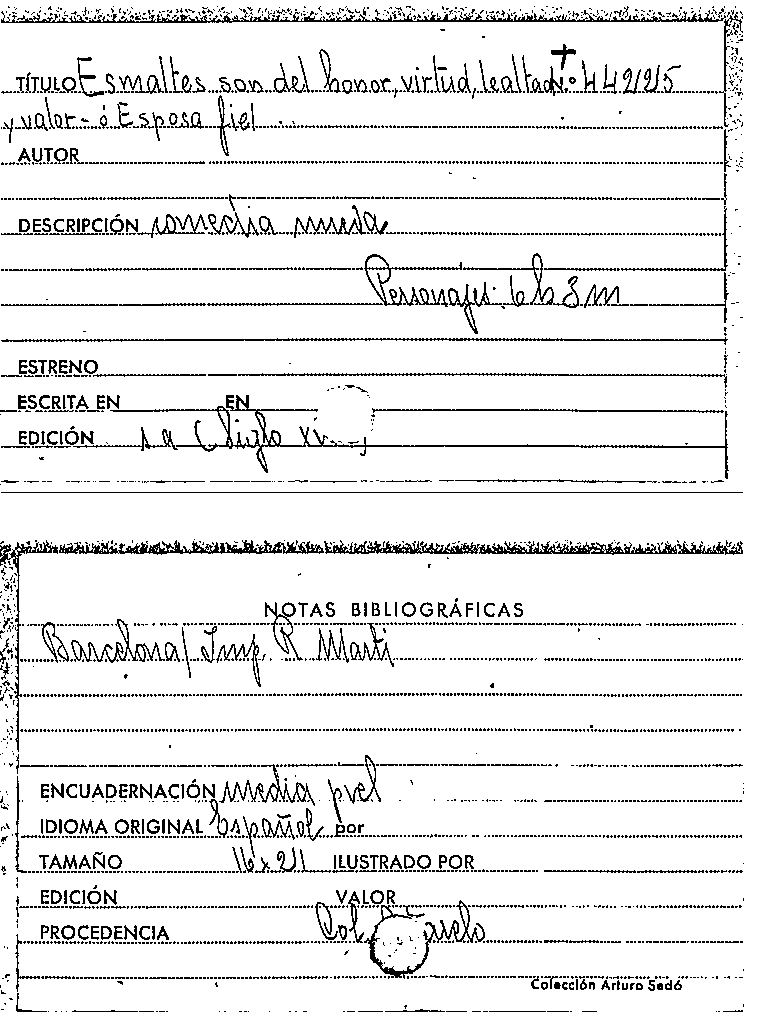 TÍTULO Esmaltes son del honor, virtud, lealtad N.º 44225
y valor - ó Esposa fiel
AUTOR
DESCRIPCIÓN comedia nueva
Personajes: 6 h 3 m
ESTRENO
ESCRITA EN EN
EDICIÓN s a (Siglo
NOTAS BIBLIOGRÁFICAS
Barcelona/ Imp. R Marti
ENCUADERNACIÓN media piel
IDIOMA ORIGINAL Español por
TAMAÑO 16 x 21 ILUSTRADO POR
EDICIÓN VALOR
PROCEDENCIA Col.
Colección Arturo Sedó